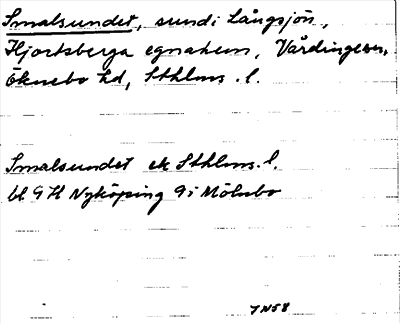 Smalsundet, sund i Långsjön,
Hjortsberga egnahem, Vårdinge sn,
Öknebo hd, Sthlms l.
Smalsundet ek Sthlms l.
bl 9H Nyköping 9i Mölnbo
7N58